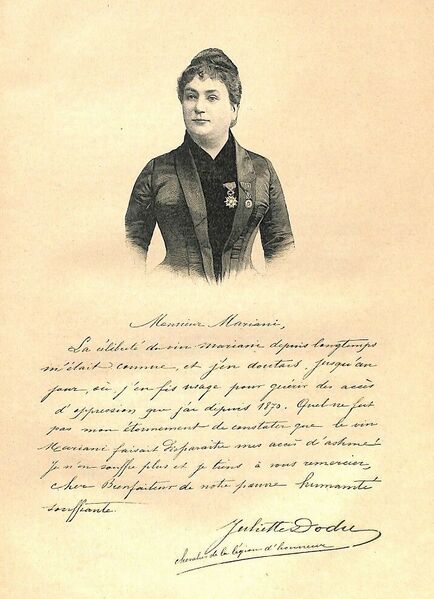 Monsieur Mariani,
La célébrité du vin mariani depuis longtemps
m'était connue, et j'en doutais, jusqu'au
jour, où j'en fis usage pour guérir des accès
d'oppression que j'ai depuis 1870. Quel ne fut
pas mon étonnement de constater que le vin
Mariani faisait disparaître mes accès d'asthme!
Je n'en souffre plus et je tiens à vous remercier,
cher Bienfaiteur de notre pauvre humanité
souffrante.
Juliette Dodu
chevalier de la légion d'honneur